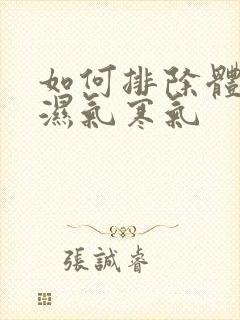 如何排除體
濕氣寒氣
張誠睿